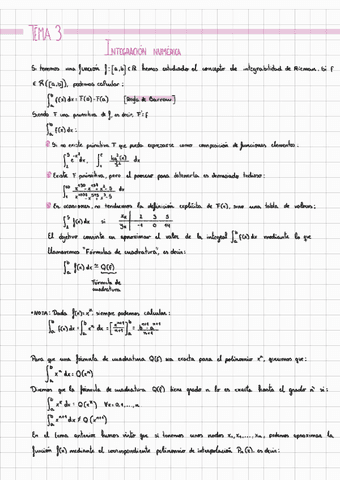 TEMA 3
INTEGRACIÓN NUMÉRICA
Si tenemos una función f: [a,b] ⊂ R hemos estudiado el concepto de integrabilidad de Riemann. Si f
∈ R([a,b]), podemos calcular:
∫_a^b f(x)dx = F(b)-F(a) [Regla de Barrow]
Siendo F una primitiva de f, es decir, F'=f
∫_a^b f(x)dx:
Si no existe primitiva F que pueda expresarse como composición de funciones elementales:
Existe F primitiva, pero el proceso para obtenerla es demasiado tedioso:
En ocasiones, no tendremos la definición explícita de F(x), sino una tabla de valores:
El objetivo consiste en aproximar el valor de la integral ∫_a^b f(x)dx mediante lo que
llamaremos "Fórmulas de cuadratura", es decir:
∫_a^b f(x)dx ≈ Q(f)
Fórmula de
cuadratura
• NOTA: Dada f(x)=x^n, siempre podemos calcular:
∫_a^b f(x)dx = ∫_a^b x^n dx = [x^{n+1}/n+1]_a^b = b^{n+1}-a^{n+1}/n+1
Para que una fórmula de cuadratura Q(f) sea exacta para el polinomio x^n, queremos que:
∫_a^b x^n dx = Q(x^n)
Diremos que la fórmula de cuadratura Q(f) tiene grado n lo es exacta hasta el grado n si:
∫_a^b x^k dx = Q(x^k) ∀k=0,1,...,n
∫_a^b x^{n+1} dx ≠ Q(x^{n+1})
En el tema anterior hemos visto que si tenemos unos nodos x_0, x_1, ..., x_n, podemos aproximar la
función f(x) mediante el correspondiente polinomio de interpolación P_n(x), es decir: